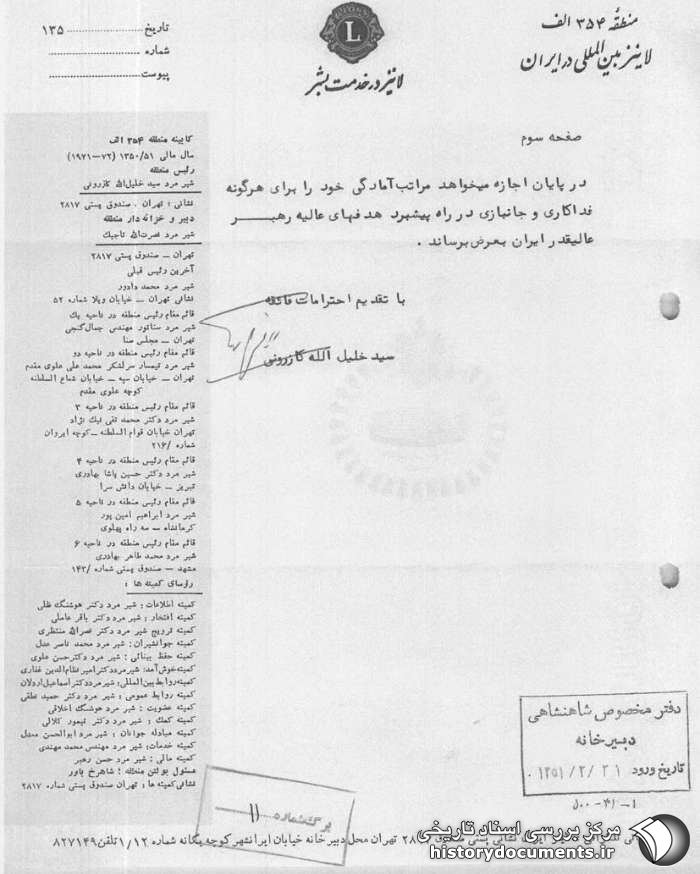 منطقه ۳۵۴ الف
لاینز بین‌المللی در ایران
لاینز در خدمت بشر
L
تاریخ ۱۳۵
شماره
پیوست
صفحه سوم
در پایان اجازه میخواهد مراتب آمادگی خود را برای هرگونه
فداکاری و جانبازی در راه پیشبرد هدفهای عالیه رهبر
عالیقدر ایران بعرض برساند .
با تقدیم احترامات فائقه
سید خلیل الله کازرونی
کابینه منطقه ۳۵۴ الف
سال مالی ۱۳۵۰/۵۱ (۷۲–۱۹۷۱)
رئیس منطقه
شیر مرد سید خلیل‌الله کازرونی
نشانی : تهران . صندوق پستی ۲۸۱۷
دبیر و خزانه‌دار منطقه
شیر مرد نصرت‌الله تاجیک
تهران – صندوق پستی ۲۸۱۷
آخرین رئیس قبلی
شیر مرد محمد دادور
نشانی تهران – خیابان ویلا شماره ۵۲
قائم مقام رئیس منطقه در ناحیه یک
شیر مرد سناتور مهندس جمال گنجی
تهران – مجلس سنا
قائم مقام رئیس منطقه در ناحیه دو
شیر مرد تیمسار سرلشکر محمد علی علوی مقدم
تهران – خیابان سپه – خیابان شعاع السلطنه
کوچه علوی مقدم
قائم مقام رئیس منطقه در ناحیه ۳
شیر مرد دکتر محمد تقی نیک نژاد
تهران خیابان قوام السلطنه – کوچه ایروان
شماره /۲۱۶
قائم مقام رئیس منطقه در ناحیه ۴
شیر مرد دکتر حسین پاشا بهادری
تبریز – خیابان دانش سرا
قائم مقام رئیس منطقه در ناحیه ۵
شیر مرد ابراهیم امین پور
کرمانشاه – سه راه پهلوی
قائم مقام رئیس منطقه در ناحیه ۶
شیر مرد محمد طاهر بهادری
مشهد – صندوق پستی شماره /۱۴۳
رؤسای کمیته ها :
کمیته اطلاعات : شیر مرد دکتر هوشنگ ظلی
کمیته افتخار : شیر مرد دکتر باقر عاملی
کمیته ترویج شیر مرد دکتر نصرالله منتظری
کمیته جوانشیران : شیر مرد محمد ناصر عدل
کمیته حفظ بینائی : شیر مرد دکتر حسن علوی
کمیته خوش‌آمد: شیر مرد دکتر امیر نظام‌الدین غفاری
کمیته روابط بین‌المللی: شیر مرد دکتر اسماعیل اردلان
کمیته روابط عمومی : شیر مرد دکتر حمید نطقی
کمیته عضویت : شیر مرد هوشنگ اخلاقی
کمیته کمک : شیر مرد دکتر تیمور کلالی
کمیته مبادله جوانان : شیر مرد ابوالحسن معدل
کمیته خدمات: شیر مرد مهندس محمد مهندی
کمیته مالی : شیر مرد حسن رهبر
مسئول بولتن منطقه : شاهرخ یاور
نشانی کمیته ها : تهران صندوق پستی شماره ۲۸۱۷
دفتر مخصوص شاهنشاهی
دبیرخانه
تاریخ ورود ۱۳۵۱/۲/۳۱
۱-۴۱-۵۰۰
برگ شماره ۱۱
۲۸۱۷ تهران محل دبیرخانه خیابان ایرانشهر کوچه یگانه شماره ۱/۱۲ تلفن ۸۲۷۱۴۹
مرکز بررسی اسناد تاریخی
historydocuments.ir